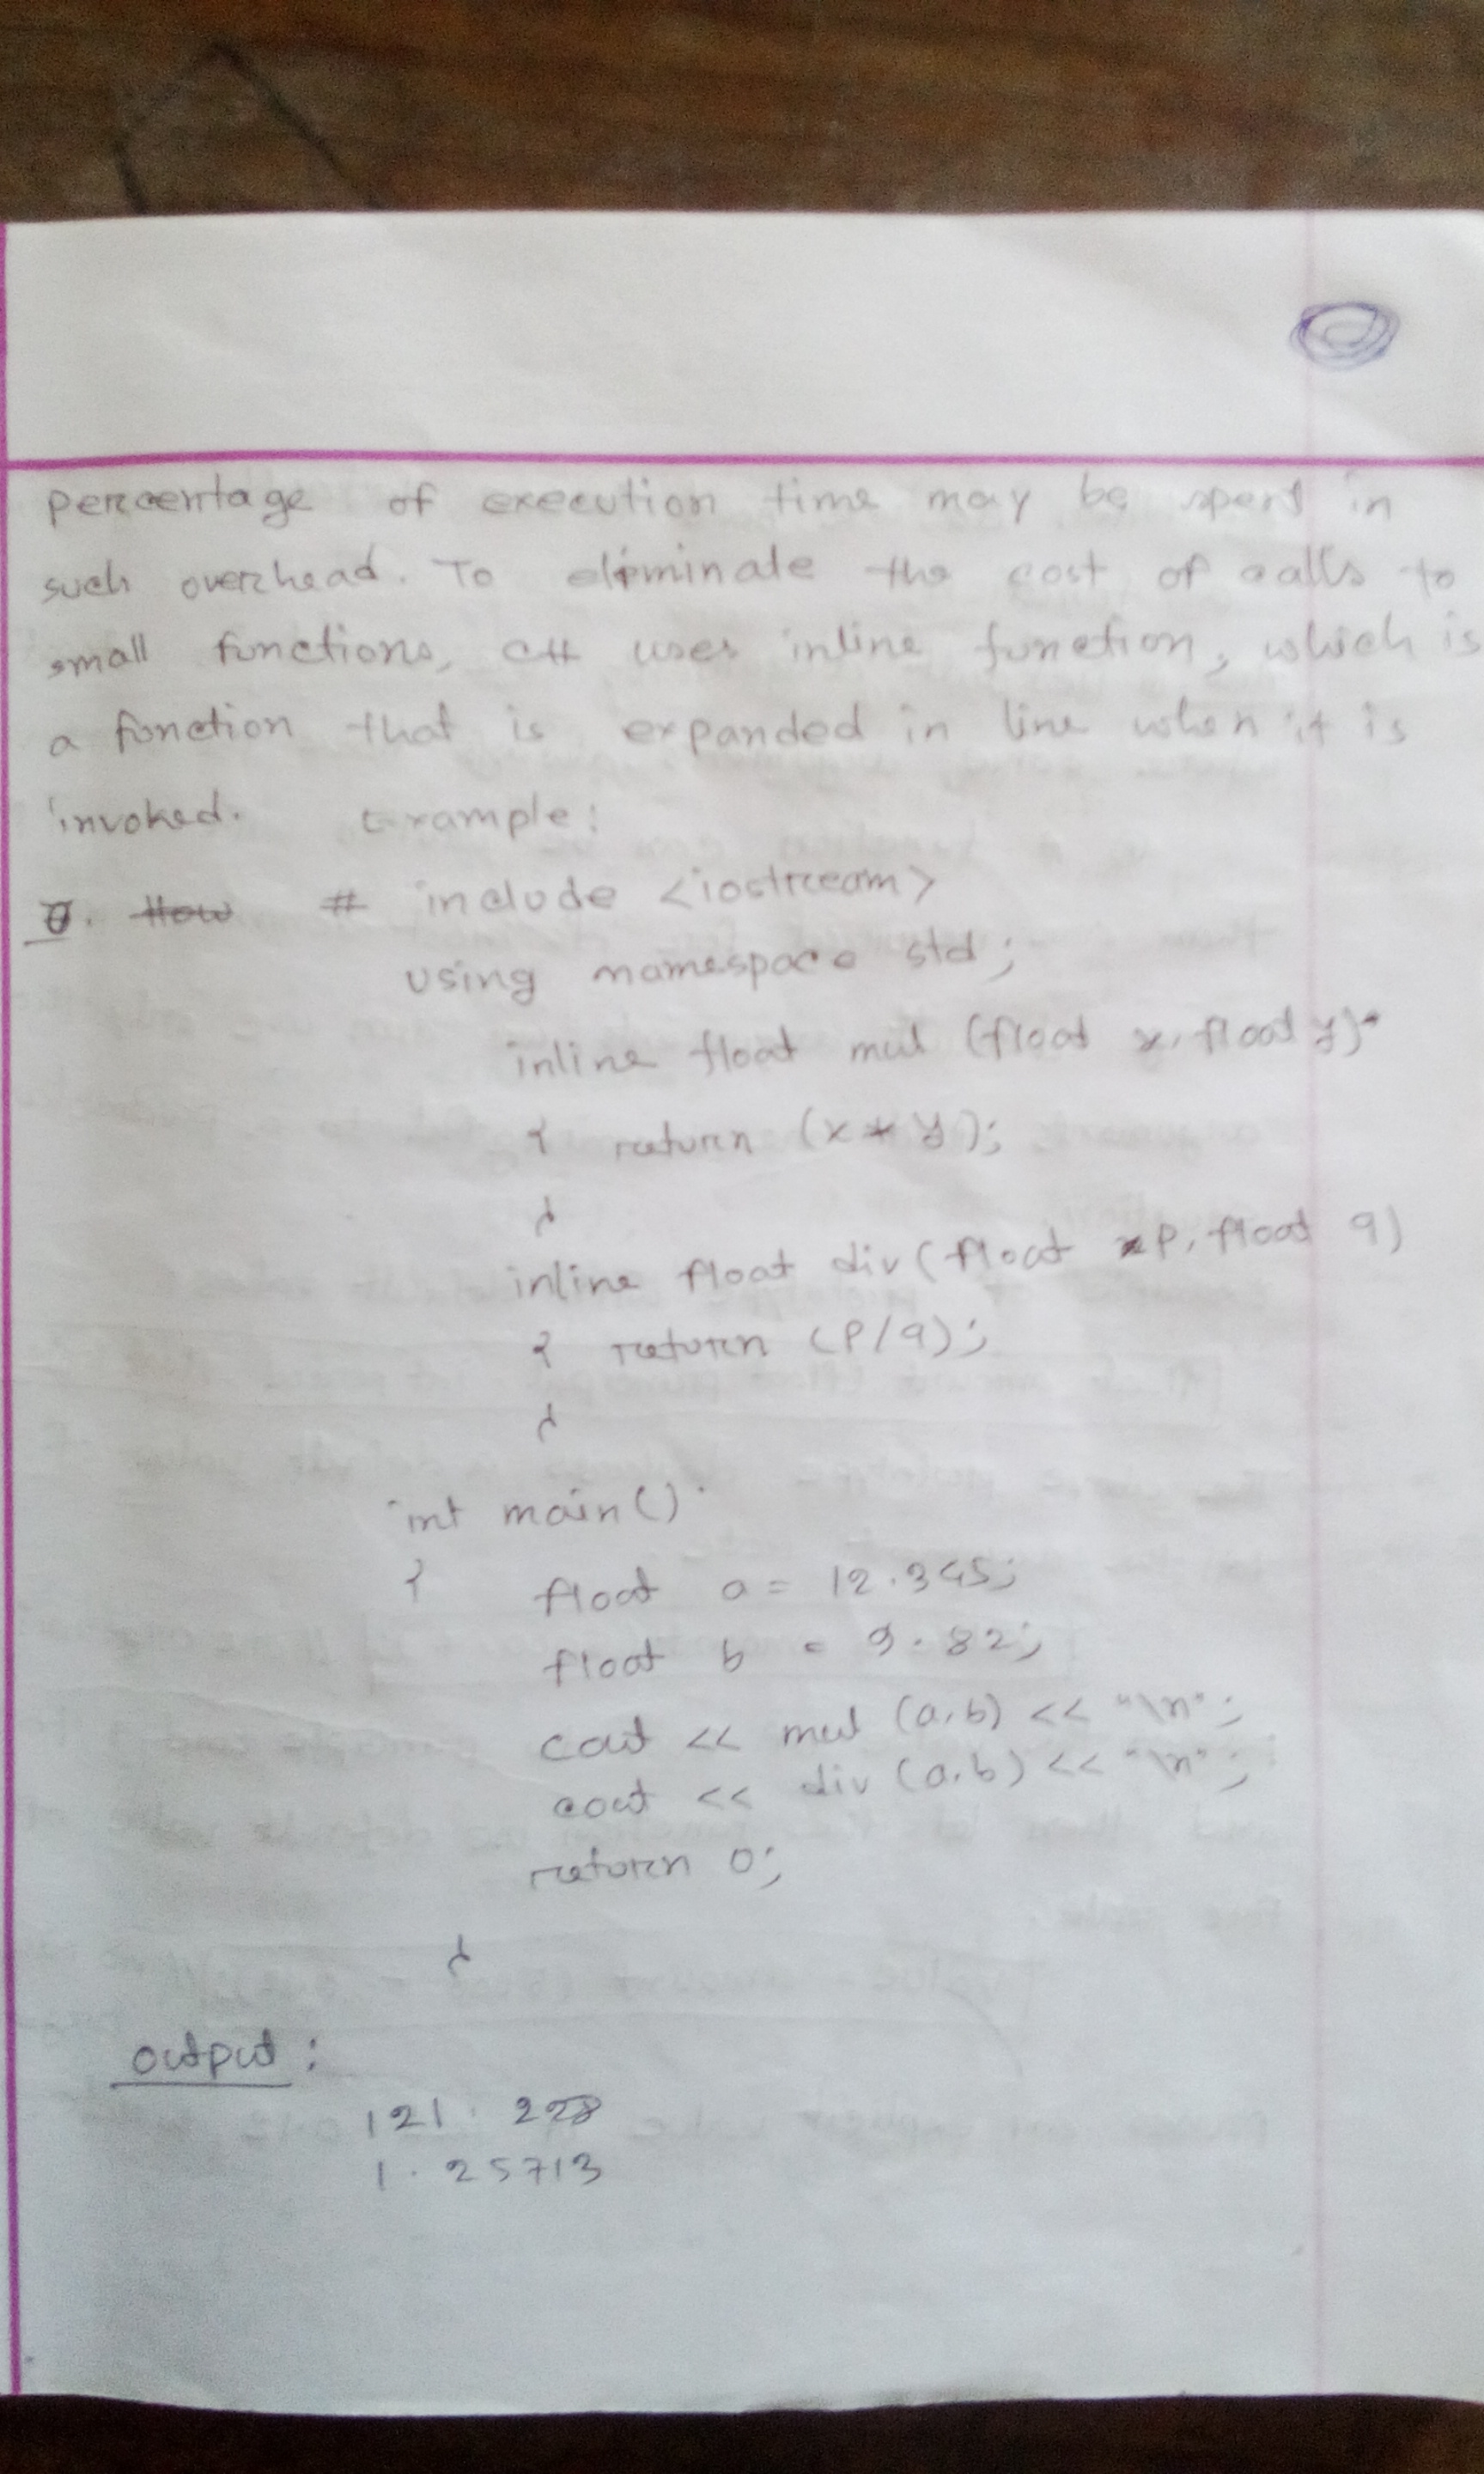 percentage of execution time may be spent in
such overhead. To eliminate the cost of calls to
small functions, C++ uses inline function, which is
a function that is expanded in line when it is
invoked. Example:
How # include <iostream>
using namespace std;
inline float mul (float x, float y)
{ return (x * y);
}
inline float div (float p, float q)
{ return (p/q);
}
int main()
{ float a = 12.345;
float b = 9.82;
cout << mul (a,b) << "\n";
cout << div (a,b) << "\n";
return 0;
}
output:
121.228
1.25713